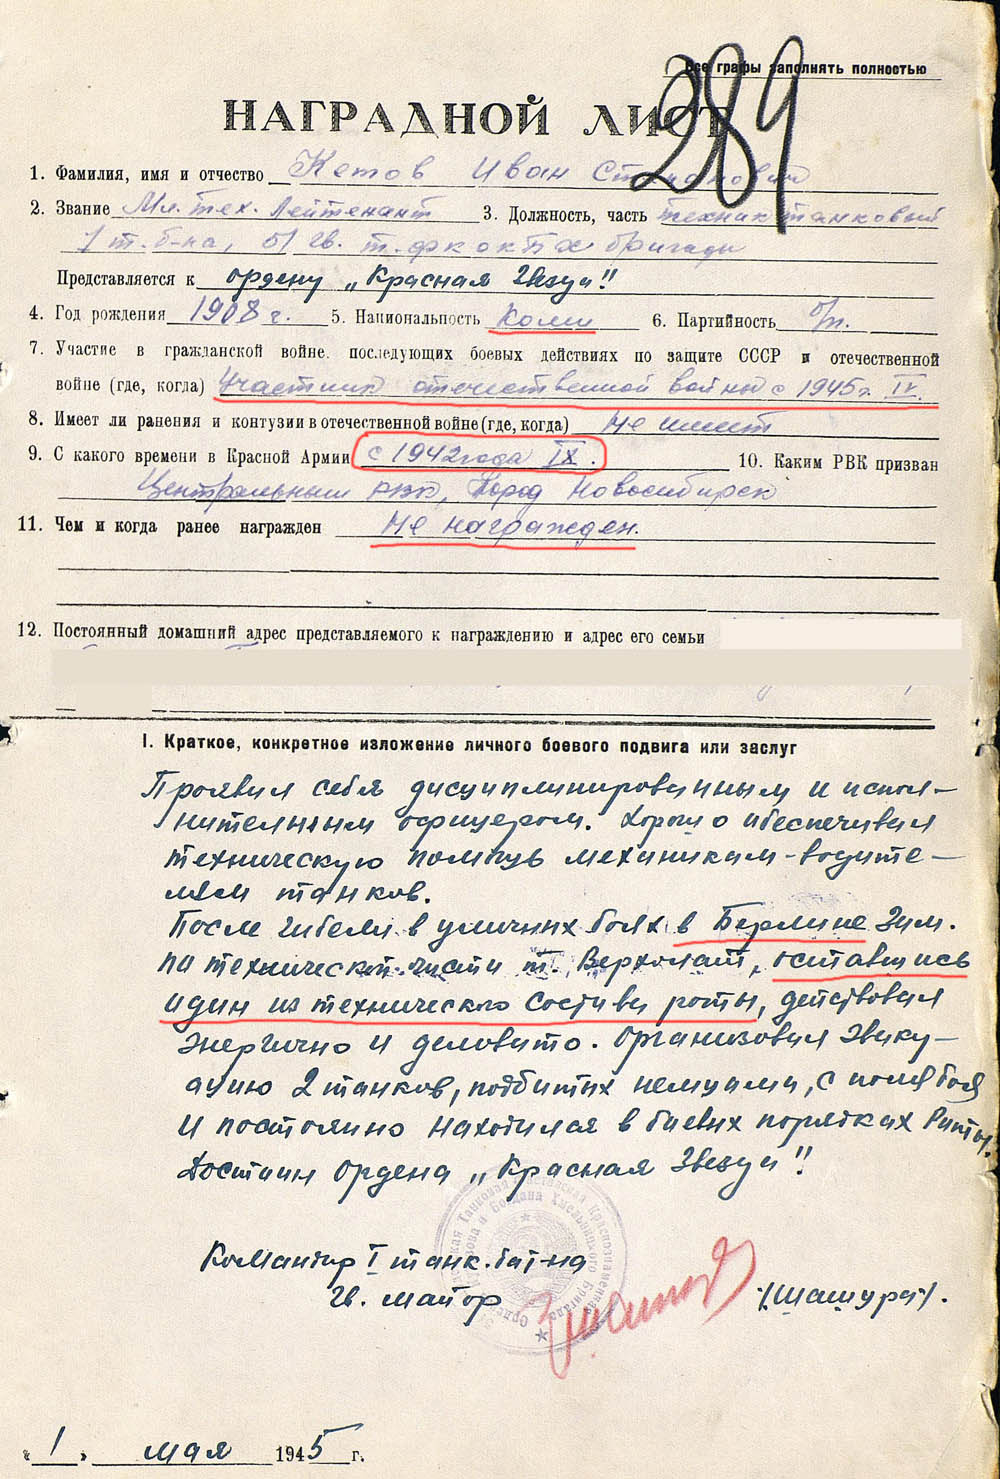 289
Все графы заполнять полностью
НАГРАДНОЙ ЛИСТ
1. Фамилия, имя и отчество Кетов Иван Степанович
2. Звание Мл. тех. Лейтенант 3. Должность, часть техник танковый
1 т. б-на, 51 гв. т. бригады
Представляется к ордену „Красная Звезда"!
4. Год рождения 1908 г. 5. Национальность Коми 6. Партийность б/п.
7. Участие в гражданской войне, последующих боевых действиях по защите СССР и отечественной
войне (где, когда) Участник отечественной войны с 1945 г. IV.
8. Имеет ли ранения и контузии в отечественной войне (где, когда) Не имеет
9. С какого времени в Красной Армии с 1942 года IX. 10. Каким РВК призван
Центральным РВК, Город Новосибирск
11. Чем и когда ранее награжден Не награжден.
12. Постоянный домашний адрес представляемого к награждению и адрес его семьи
I. Краткое, конкретное изложение личного боевого подвига или заслуг
Проявил себя дисциплинированным и испол-
нительным офицером. Хорошо обеспечивал
техническую помощь механикам-водите-
лям танков.
После гибели в уличных боях в Берлине Зам.
по технической части т. Верхолат, оставшись
один из технического состава роты, действовал
энергично и деловито. Организовал эваку-
ацию 2 танков, подбитых немцами, с поля боя
и постоянно находился в боевых порядках Роты.
Достоин Ордена „Красная Звезда"!
Командир I танк. бат-на
Гв. майор (Шашура).
Танковая Краснознаменная
и Богдана Хмельницкого Бригада
„1" мая 1945 г.